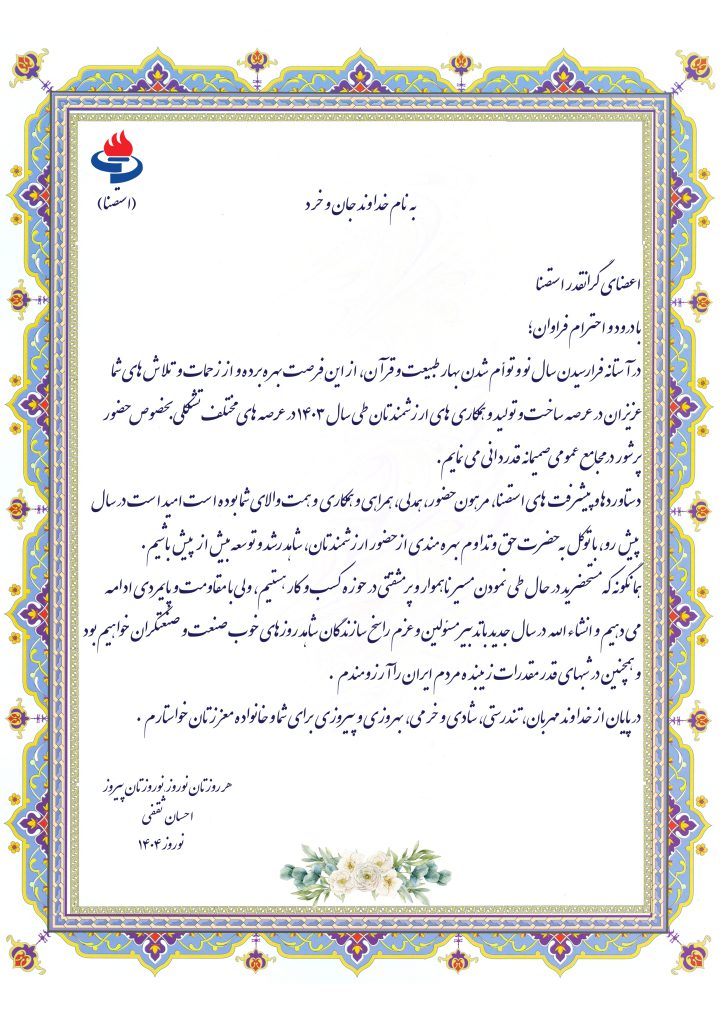 (استصنا)
به نام خداوند جان و خرد
اعضای گرانقدر استصنا
با درود و احترام فراوان؛
در آستانه فرارسیدن سال نو و توأم شدن بهار طبیعت و قرآن، از این فرصت بهره برده و از زحمات و تلاش های شما
عزیزان در عرصه ساخت و تولید و همکاری های ارزشمندتان طی سال ۱۴۰۳ در عرصه های مختلف تشکلی بخصوص حضور
پرشور در مجامع عمومی صمیمانه قدردانی می نمایم.
دستاوردها و پیشرفت های استصنا، مرهون حضور، همدلی، همراهی و همکاری و همت والای شما بوده است امید است در سال
پیش رو، با توکل به حضرت حق و تداوم بهره مندی از حضور ارزشمندتان، شاهد رشد و توسعه بیش از پیش باشیم.
همانگونه که مستحضرید در حال طی نمودن مسیر ناهموار و پرمشقتی در حوزه کسب و کار هستیم، ولی با مقاومت و پایمردی ادامه
می دهیم و انشاء الله در سال جدید با تدبیر مسئولین و عزم راسخ سازندگان شاهد روزهای خوب صنعت و صنعتگران خواهیم بود
و همچنین در شبهای قدر مقدرات زیبنده مردم ایران را آرزومندم.
در پایان از خداوند مهربان، تندرستی، شادی و خرمی، بهروزی و پیروزی برای شما و خانواده معززتان خواستارم.
هر روزتان نوروز نوروزتان پیروز
احسان ثقفی
نوروز ۱۴۰۴